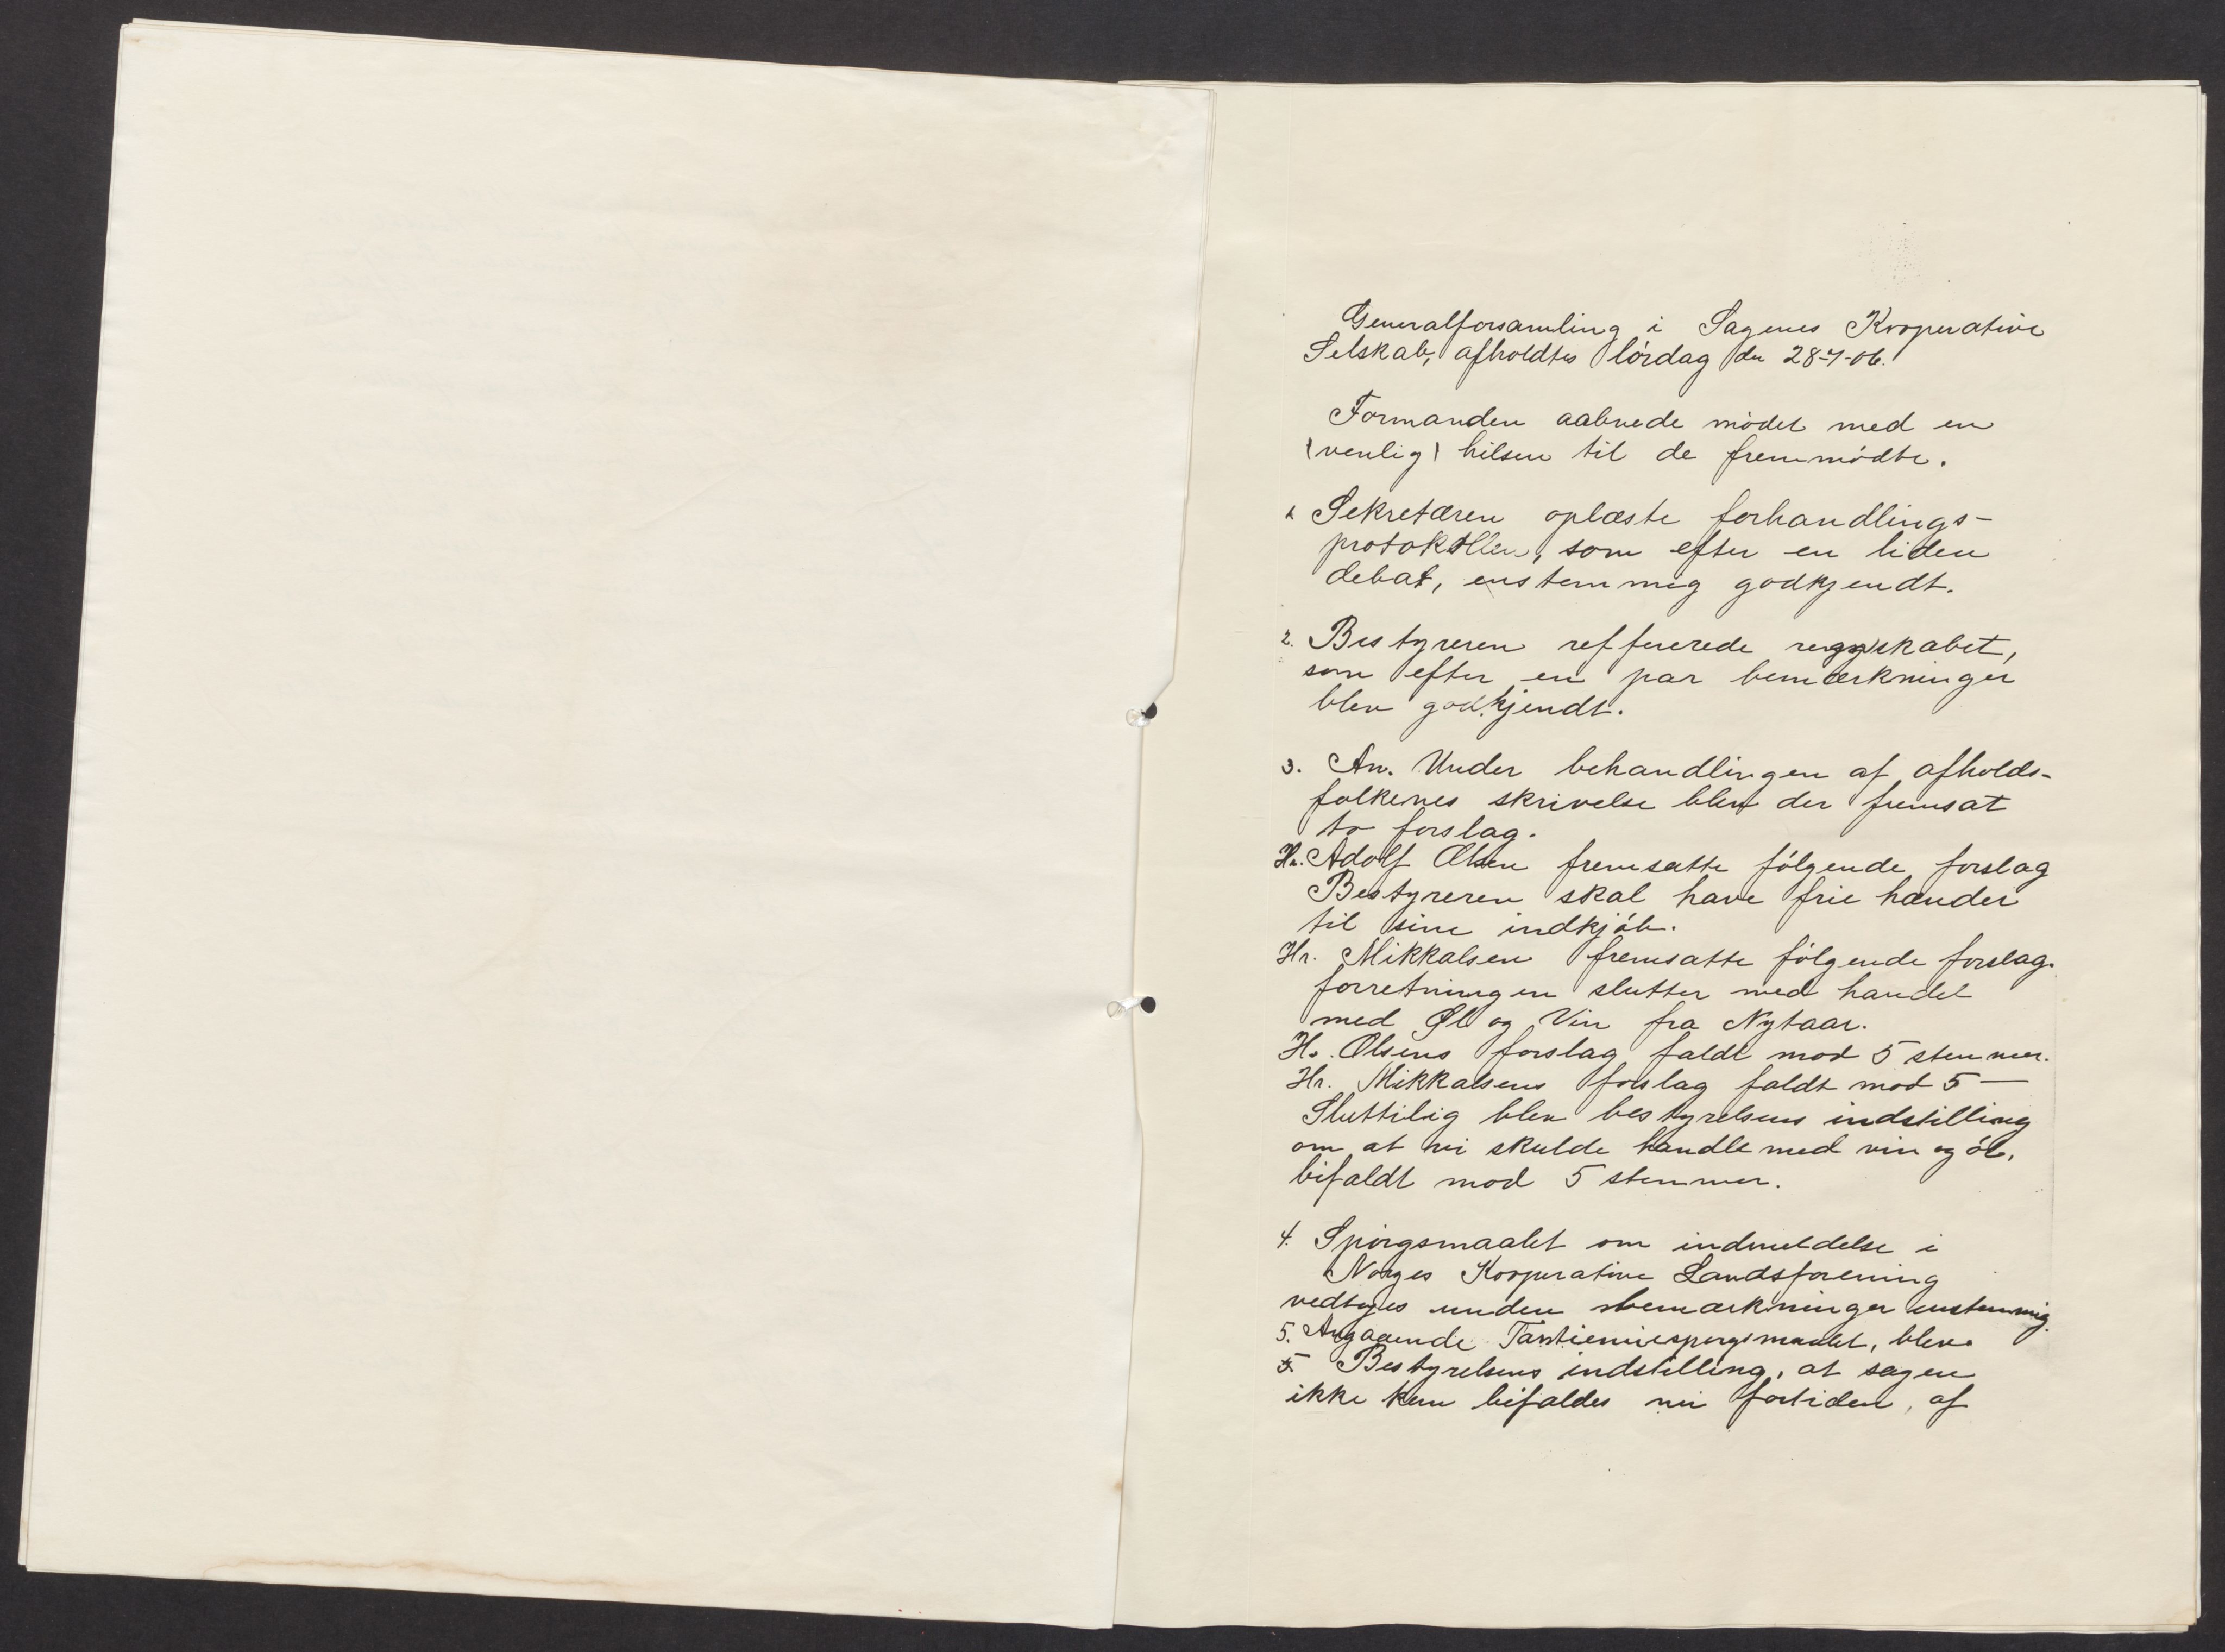 Generalforsamling i Sagenes Kooperative
Selskab, afholdtes lørdag den 28-7-06.
Formanden aabnede mødet med en
(venlig) hilsen til de fremmødte.
1. Sekretæren oplæste forhandlings-
protokollen, som efter en liden
debat, enstemmig godkjendt.
2. Bestyreren refererede regnskabet,
som efter en par bemærkninger
blev godkjendt.
3. An. Under behandlingen af afholds-
folkenes skrivelse blev der fremsat
to forslag.
Hr. Adolf Olsen fremsatte følgende forslag
Bestyreren skal have frie hænder
til sine indkjøb.
Hr. Mikkalsen fremsatte følgende forslag.
forretningen slutter med handel
med Øl og Vin fra Nytaar.
Hr. Olsens forslag faldt mod 5 stemmer.
Hr. Mikkalsens forslag faldt mod 5 —
Sluttilig blev bestyrelsens indstilling
om at vi skulde handle med vin og øl,
bifaldt mod 5 stemmer.
4. Spørgsmaalet om indmeldelse i
Norges Kooperative Landsforening
vedtoges uden bemærkninger enstemmig.
5. Angaaende Tantiemespørgsmaalet, blev
5. Bestyrelsens indstilling, at sagen
ikke kan bifaldes nu fortiden, af